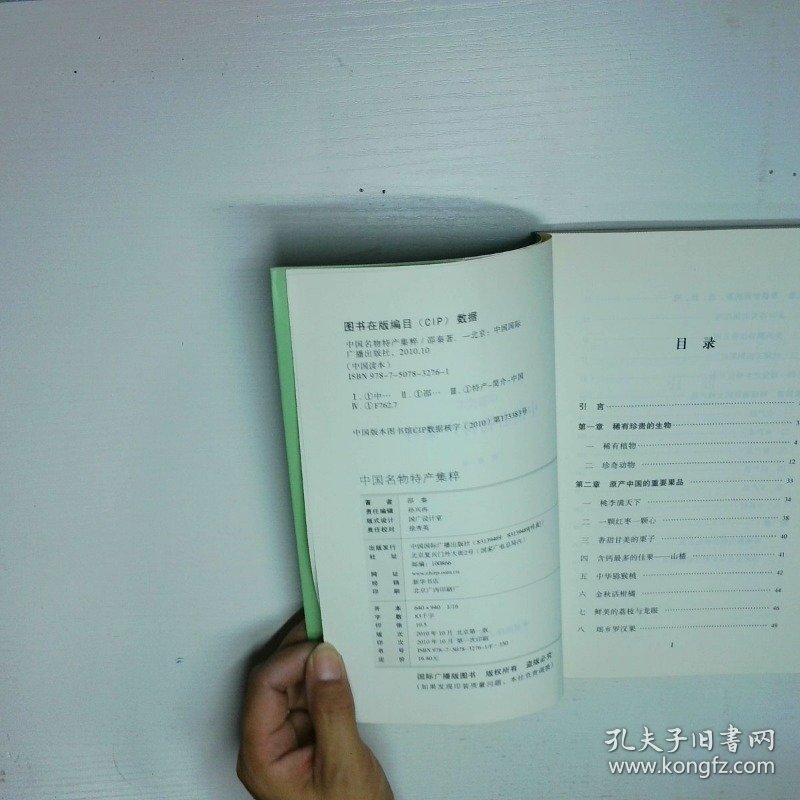 图书在版编目（CIP）数据
中国名物特产集粹/邵秦著.—北京：中国国际
广播出版社，2010.10
（中国读本）
ISBN 978-7-5078-3276-1
Ⅰ.①中… Ⅱ.①邵… Ⅲ.①特产-简介-中国
Ⅳ.①F762.7
中国版本图书馆CIP数据核字（2010）第173383号
中国名物特产集粹
著 者 邵 秦
责任编辑
版式设计 国广设计室
责任校对 徐秀英
出版发行 中国国际广播出版社
社 址 北京复兴门外大街2号（国家广电总局内）
邮编：100866
网 址 www.chirp.com.cn
经 销 新华书店
印 刷 北京广内印刷厂
开 本 640×940 1/16
字 数 83千字
印 张 10.5
版 次 2010年10月 北京第一版
印 次 2010年10月 第一次印刷
书 号 ISBN 978-7-5078-3276-1/F·350
定 价 16.80元
国际广播版图书 版权所有 盗版必究
（如果发现印装质量问题，本社负责调换）
目 录
引 言
第一章 稀有珍贵的生物 3
一 稀有植物 4
二 珍奇动物 12
第二章 原产中国的重要果品 33
一 桃李满天下 34
二 一颗红枣一颗心
三 香甜甘美的栗子
四 含钙最多的佳果——山楂
五 中华猕猴桃 42
六 金秋话柑橘 44
七 鲜美的荔枝与龙眼 46
八 瑶乡罗汉果 49
1
孔夫子旧书网
www.kongfz.com